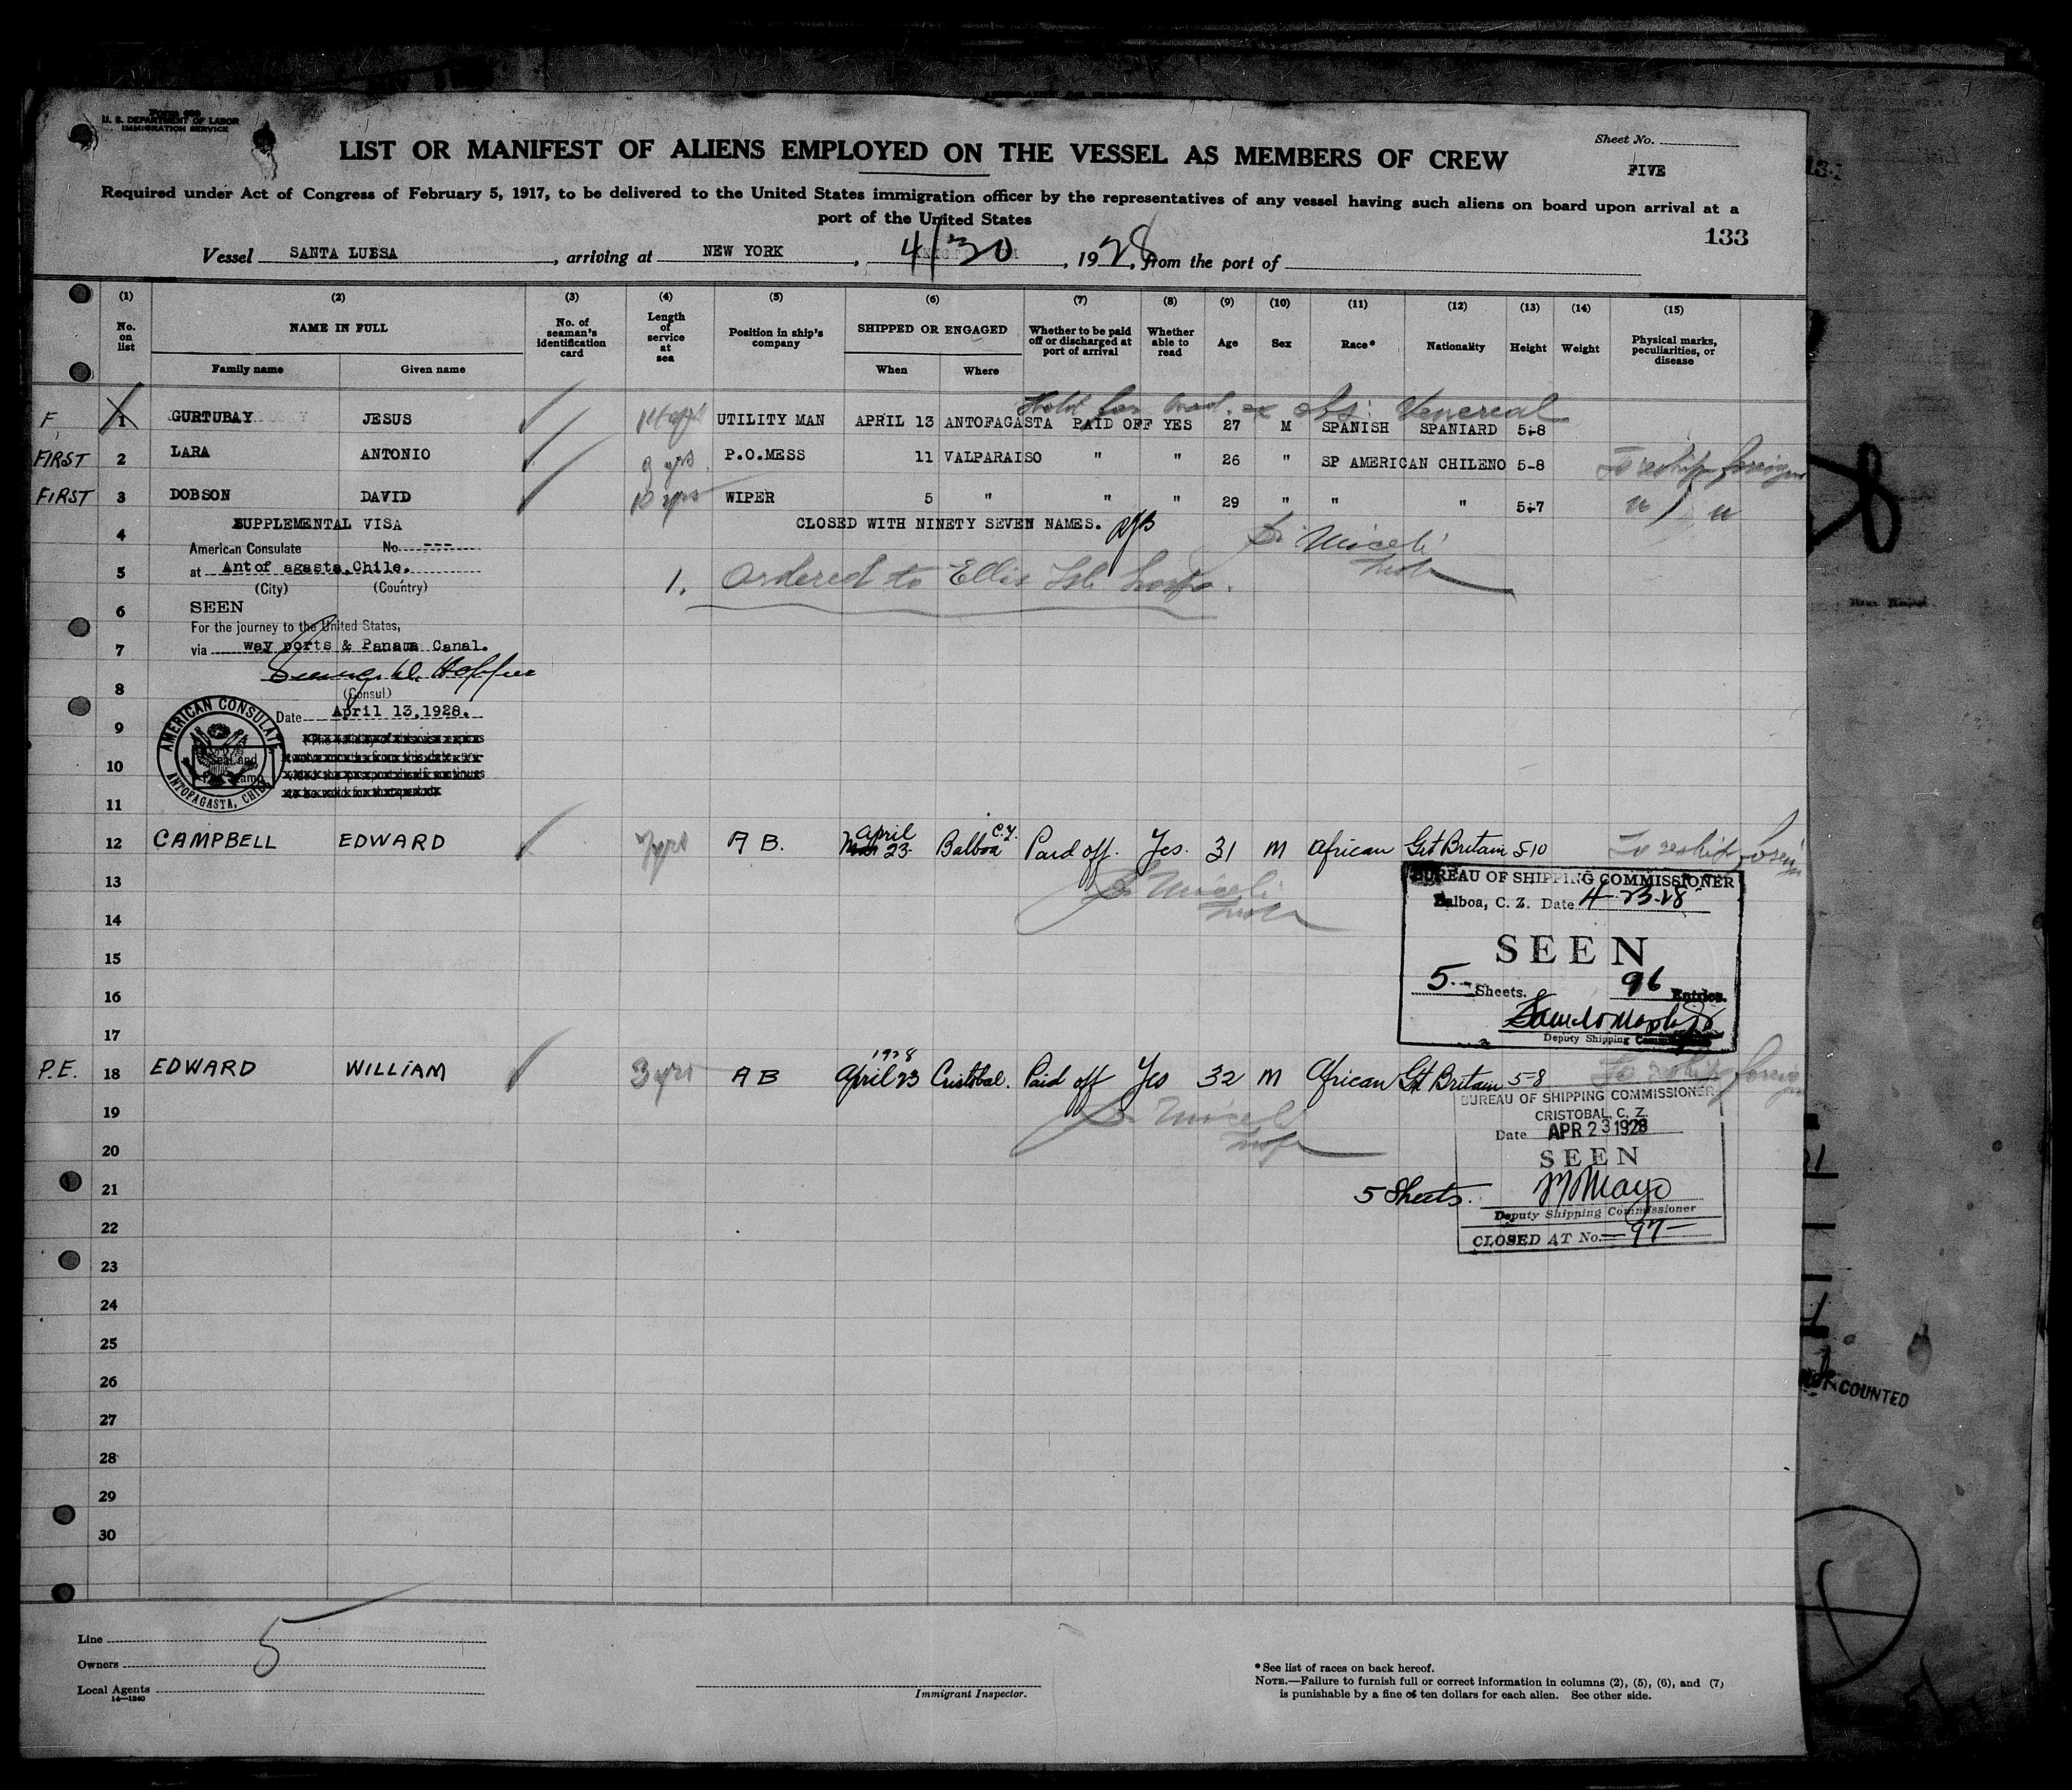 Form 689
U. S. DEPARTMENT OF LABOR
IMMIGRATION SERVICE
Sheet No.
FIVE
LIST OR MANIFEST OF ALIENS EMPLOYED ON THE VESSEL AS MEMBERS OF CREW
Required under Act of Congress of February 5, 1917, to be delivered to the United States immigration officer by the representatives of any vessel having such aliens on board upon arrival at a
port of the United States
133
Vessel SANTA LUESA, arriving at NEW YORK, 4/30, 1928, from the port of
(1) (2) (3) (4) (5) (6) (7) (8) (9) (10) (11) (12) (13) (14) (15)
No. on list NAME IN FULL No. of seaman's identification card Length of service at sea Position in ship's company SHIPPED OR ENGAGED Whether to be paid off or discharged at port of arrival Whether able to read Age Sex Race* Nationality Height Weight Physical marks, peculiarities, or disease
Family name Given name When Where
Hold for med. ex obs: Venereal
F 1 GURTUBAY JESUS UTILITY MAN APRIL 13 ANTOFAGASTA PAID OFF YES 27 M SPANISH SPANIARD 5-8
FIRST 2 LARA ANTONIO 9 yrs P.O.MESS 11 VALPARAISO " " 26 " SP AMERICAN CHILENO 5-8 To reship foreign
FIRST 3 DOBSON DAVID 10 yrs WIPER 5 " " " 29 " " " 5-7 " "
SUPPLEMENTAL VISA CLOSED WITH NINETY SEVEN NAMES.
4
American Consulate No. ---
5 at Antofagasta, Chile.
(City) (Country)
1. Ordered to Ellis Isl. Hosp.
6 SEEN
For the journey to the United States,
7 via way ports & Panama Canal.
8 (Consul)
Date April 13, 1928.
AMERICAN CONSULATE
ANTOFAGASTA, CHILE
9
10
11
12 CAMPBELL EDWARD 7 yrs A B. April 23 Balboa C.Z. Paid off. Yes. 31 M African Gt Britain 5-10 To reship foreign
13
BUREAU OF SHIPPING COMMISSIONER
Balboa, C. Z. Date 4-23-28
14
15 SEEN
16 5-- Sheets. 96 Entries.
17 Deputy Shipping Commissioner
1928
P.E. 18 EDWARD WILLIAM 3 yrs A B April 23 Cristobal. Paid off Yes 32 M African Gt Britain 5-8 To reship foreign
BUREAU OF SHIPPING COMMISSIONER
19 CRISTOBAL, C. Z.
Date APR 23 1928
20 SEEN
21 5 Sheets.
Deputy Shipping Commissioner
22 CLOSED AT No. 97
23
24
25
26
NOT COUNTED
27
28
29
30
Line
5
Owners
Local Agents
14—1240
Immigrant Inspector.
* See list of races on back hereof.
NOTE.—Failure to furnish full or correct information in columns (2), (5), (6), and (7)
is punishable by a fine of ten dollars for each alien. See other side.